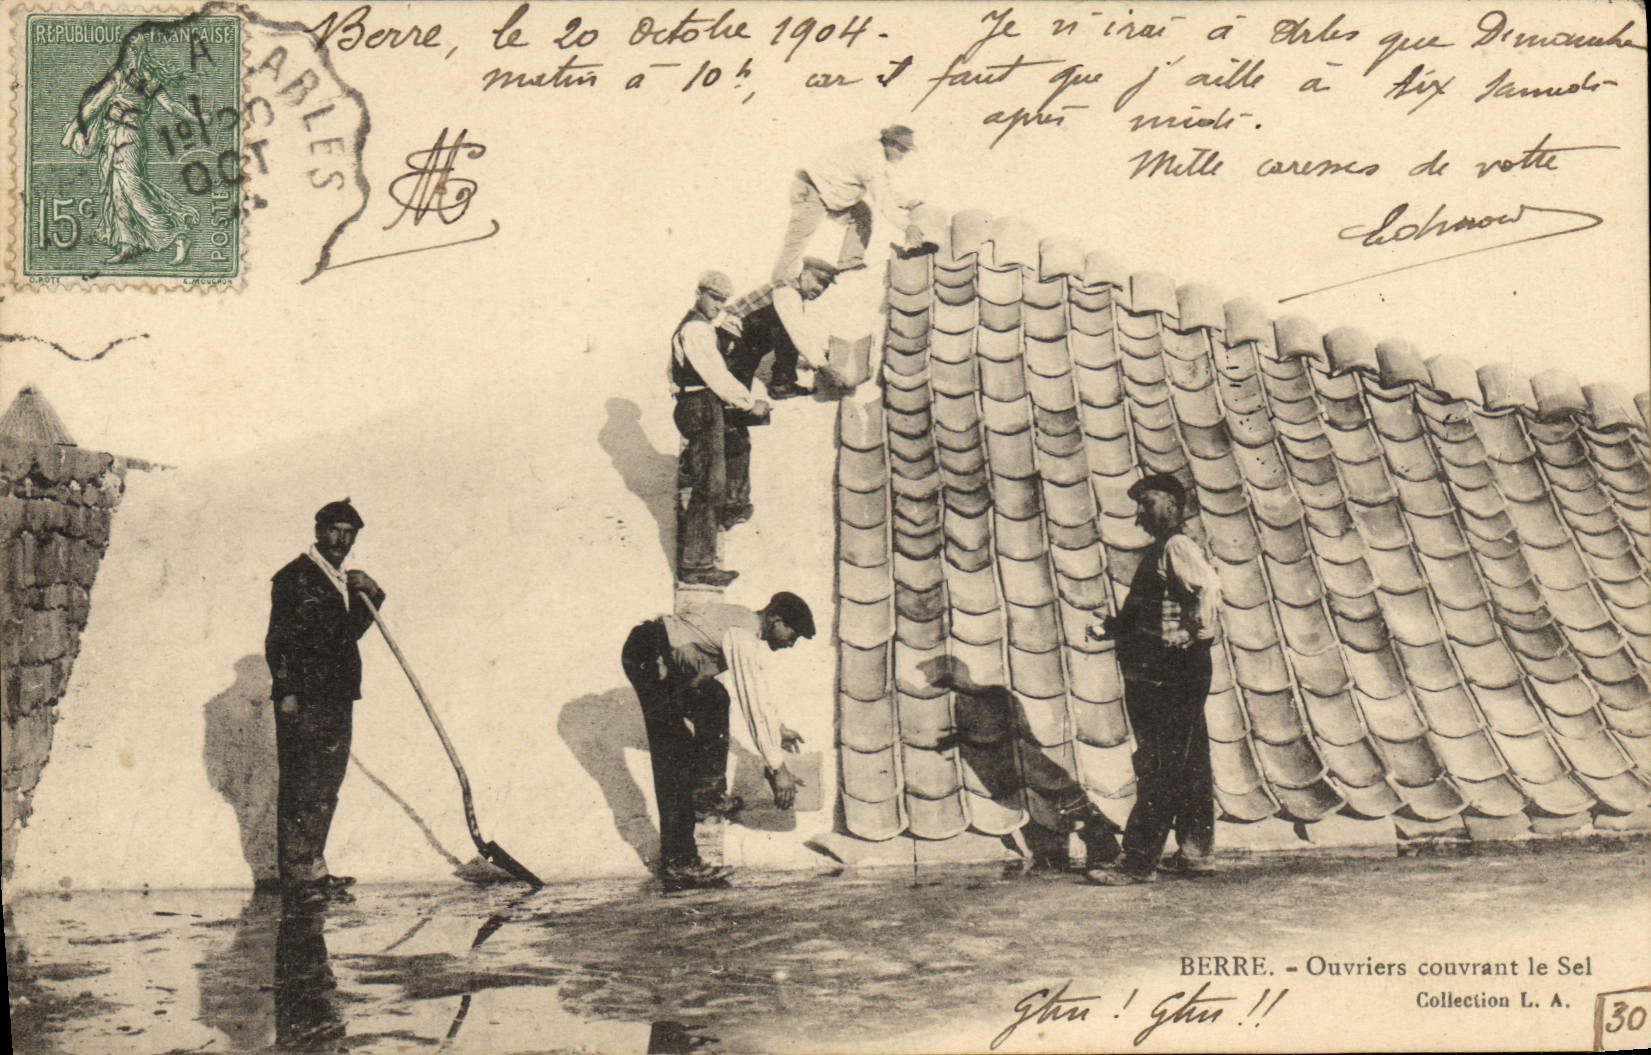 REPUBLIQUE FRANÇAISE
15c
POSTES
O. ROTY
E. MOUCHON
A ARLES
OCT
Berre, le 20 Octobre 1904. Je n'irai à Arles que Dimanche
matin à 10h, car il faut que j'aille à Aix Samedi
après midi.
Mille caresses de votre
BERRE. - Ouvriers couvrant le Sel
Collection L. A.
! !!
30